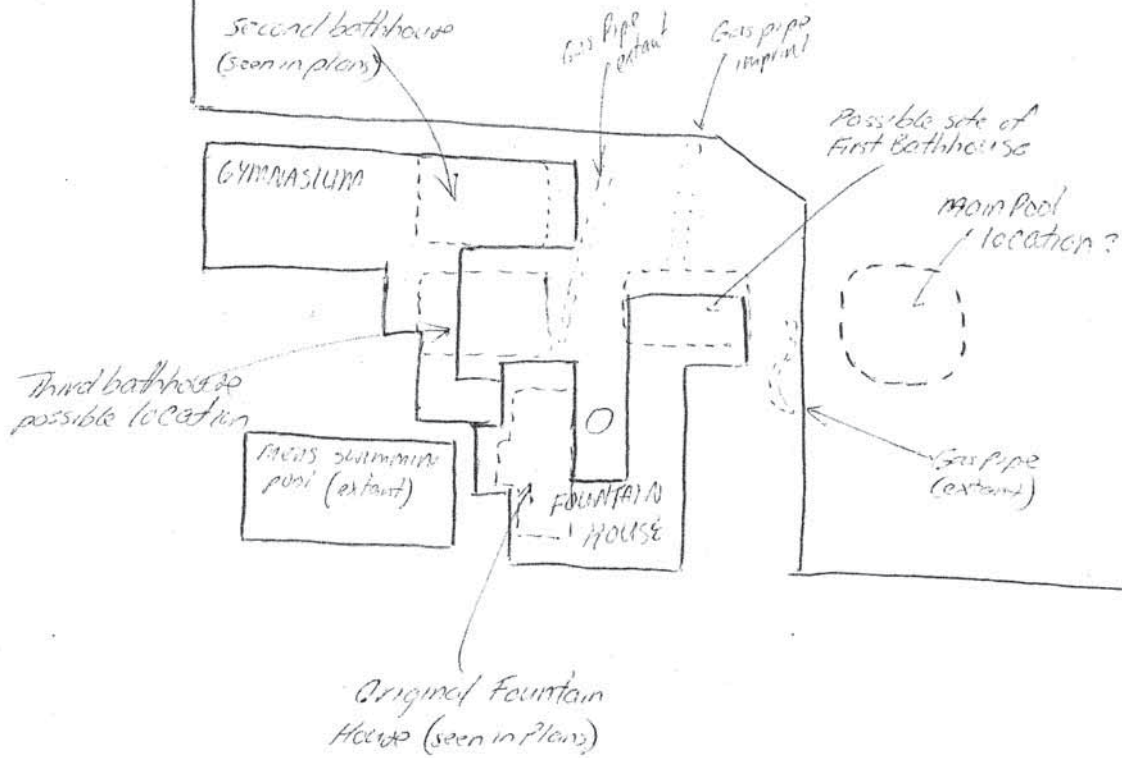 second bathhouse
(seen in plans)
Gas Pipe
extant
Gas pipe
imprint
Possible site of
First Bathhouse
GYMNASIUM
main Pool
location?
Third bathhouse
possible location
mens swimmin
pool (extant)
FOUNTAIN
HOUSE
Gas pipe
(extant)
Original Fountain
House (seen in Plans)